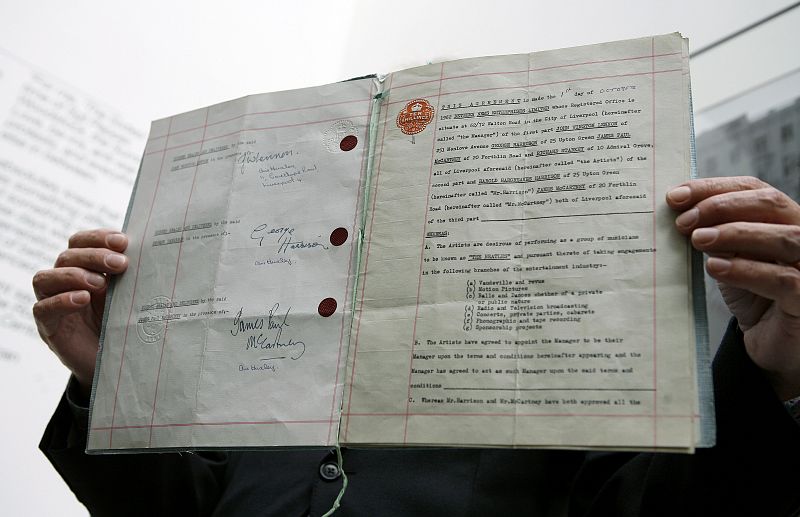 SIGNED SEALED AND DELIVERED by the said
in the presence of:-
J W Lennon
Liverpool 4
SIGNED SEALED AND DELIVERED by the said
GEORGE HARRISON in the presence of:-
George
Harrison
SIGNED SEALED AND DELIVERED by the said
in the presence of:-
James Paul
McCartney
THIS AGREEMENT is made the 1st day of OCTOBER
1962 BETWEEN NEMS ENTERPRISES LIMITED whose Registered Office is
situate at 62/72 Walton Road in the City of Liverpool (hereinafter
called "the Manager") of the first part JOHN WINSTON LENNON of
251 Menlove Avenue GEORGE HARRISON of 25 Upton Green JAMES PAUL
McCARTNEY of 20 Forthlin Road and RICHARD STARKEY of 10 Admiral Grove,
all of Liverpool aforesaid (hereinafter called "the Artists") of the
second part and HAROLD HARGREAVES HARRISON of 25 Upton Green
(hereinafter called "Mr.Harrison") JAMES McCARTNEY of 20 Forthlin
Road (hereinafter called "Mr.McCartney") both of Liverpool aforesaid
of the third part
WHEREAS:
A. The Artists are desirous of performing as a group of musicians
to be known as "THE BEATLES" and pursuant thereto of taking engagements
in the following branches of the entertainment industry:-
(a) Vaudeville and revue
(b) Motion Pictures
(c) Balls and Dances whether of a private
or public nature
(d) Radio and Television broadcasting
(e) Concerts, private parties, cabarets
(f) Phonographic and tape recording
(g) Sponsorship projects
B. The Artists have agreed to appoint the Manager to be their
Manager upon the terms and conditions hereinafter appearing and the
Manager has agreed to act as such Manager upon the said terms and
conditions
C. Whereas Mr.Harrison and Mr.McCartney have both approved all the